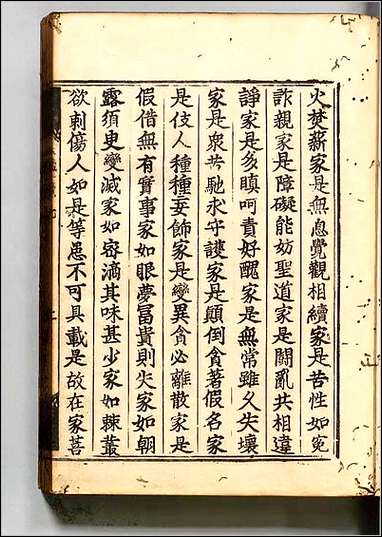 火焚薪家是無息覺觀相續家是苦性如寃
詐親家是障礙能妨聖道家是鬪亂共相違
諍家是多瞋呵責好醜家是無常雖乆失壞
家是衆苦馳求守護家是顛倒貪著假名家
是伎人種種妄飾家是變異貪必離散家是
假借無有實事家如眼夢冨貴則失家如朝
露須臾變滅家如宻滴其味甚少家如棘叢
欲刺傷人如是等患不可具載是故在家菩